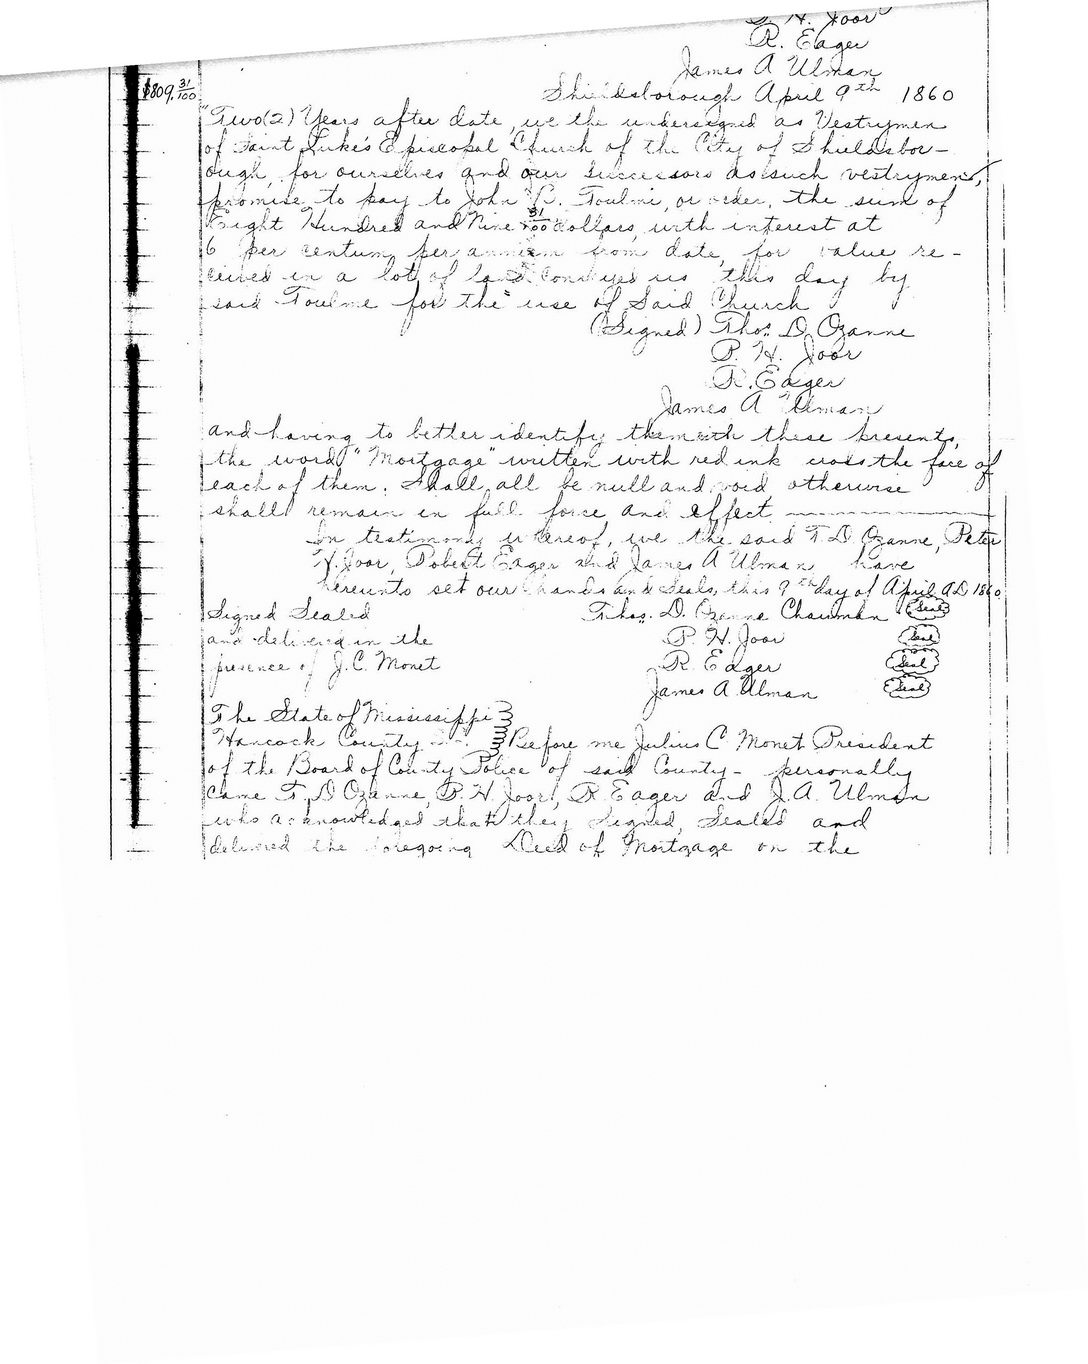 P. H. Joor
R. Eager
James A Ulman
$809.31/100 Shieldsborough April 9th 1860
"Two (2) Years after date, we the undersigned as Vestrymen
of Saint Luke's Episcopal Church of the City of Shieldsbor-
ough, for ourselves and our successors as such vestrymen,
promise to pay to John B. Toulme, or order, the sum of
Eight Hundred and Nine 31/100 dollars, with interest at
6 per centum per annum from date, for value re-
ceived in a lot of land conveyed us this day by
said Toulme for the use of Said Church
(Signed) Thos. D. Ozanne
P. H. Joor
R. Eager
James A Ulman
and having to better identify them with these presents,
the word "Mortgage" written with red ink cross the face of
each of them. Shall all be null and void otherwise
shall remain in full force and effect
In testimony whereof, we the said T. D Ozanne, Peter
H. Joor, Robert Eager and James A Ulman have
hereunto set our hands and Seals, this 9th day of April AD 1860
Signed Sealed Thos. D. Ozanne Chairman (Seal)
and delivered in the P. H. Joor (Seal)
presence of J. C. Monet R. Eager (Seal)
James A. Ulman (Seal)
The State of Mississippi
Hancock County Before me Julius C Monet President
of the Board of County Police of said County - personally
came T. D Ozanne, P. H. Joor, R. Eager and J. A. Ulman
who acknowledged that they Signed, Sealed and
delivered the foregoing Deed of Mortgage on the